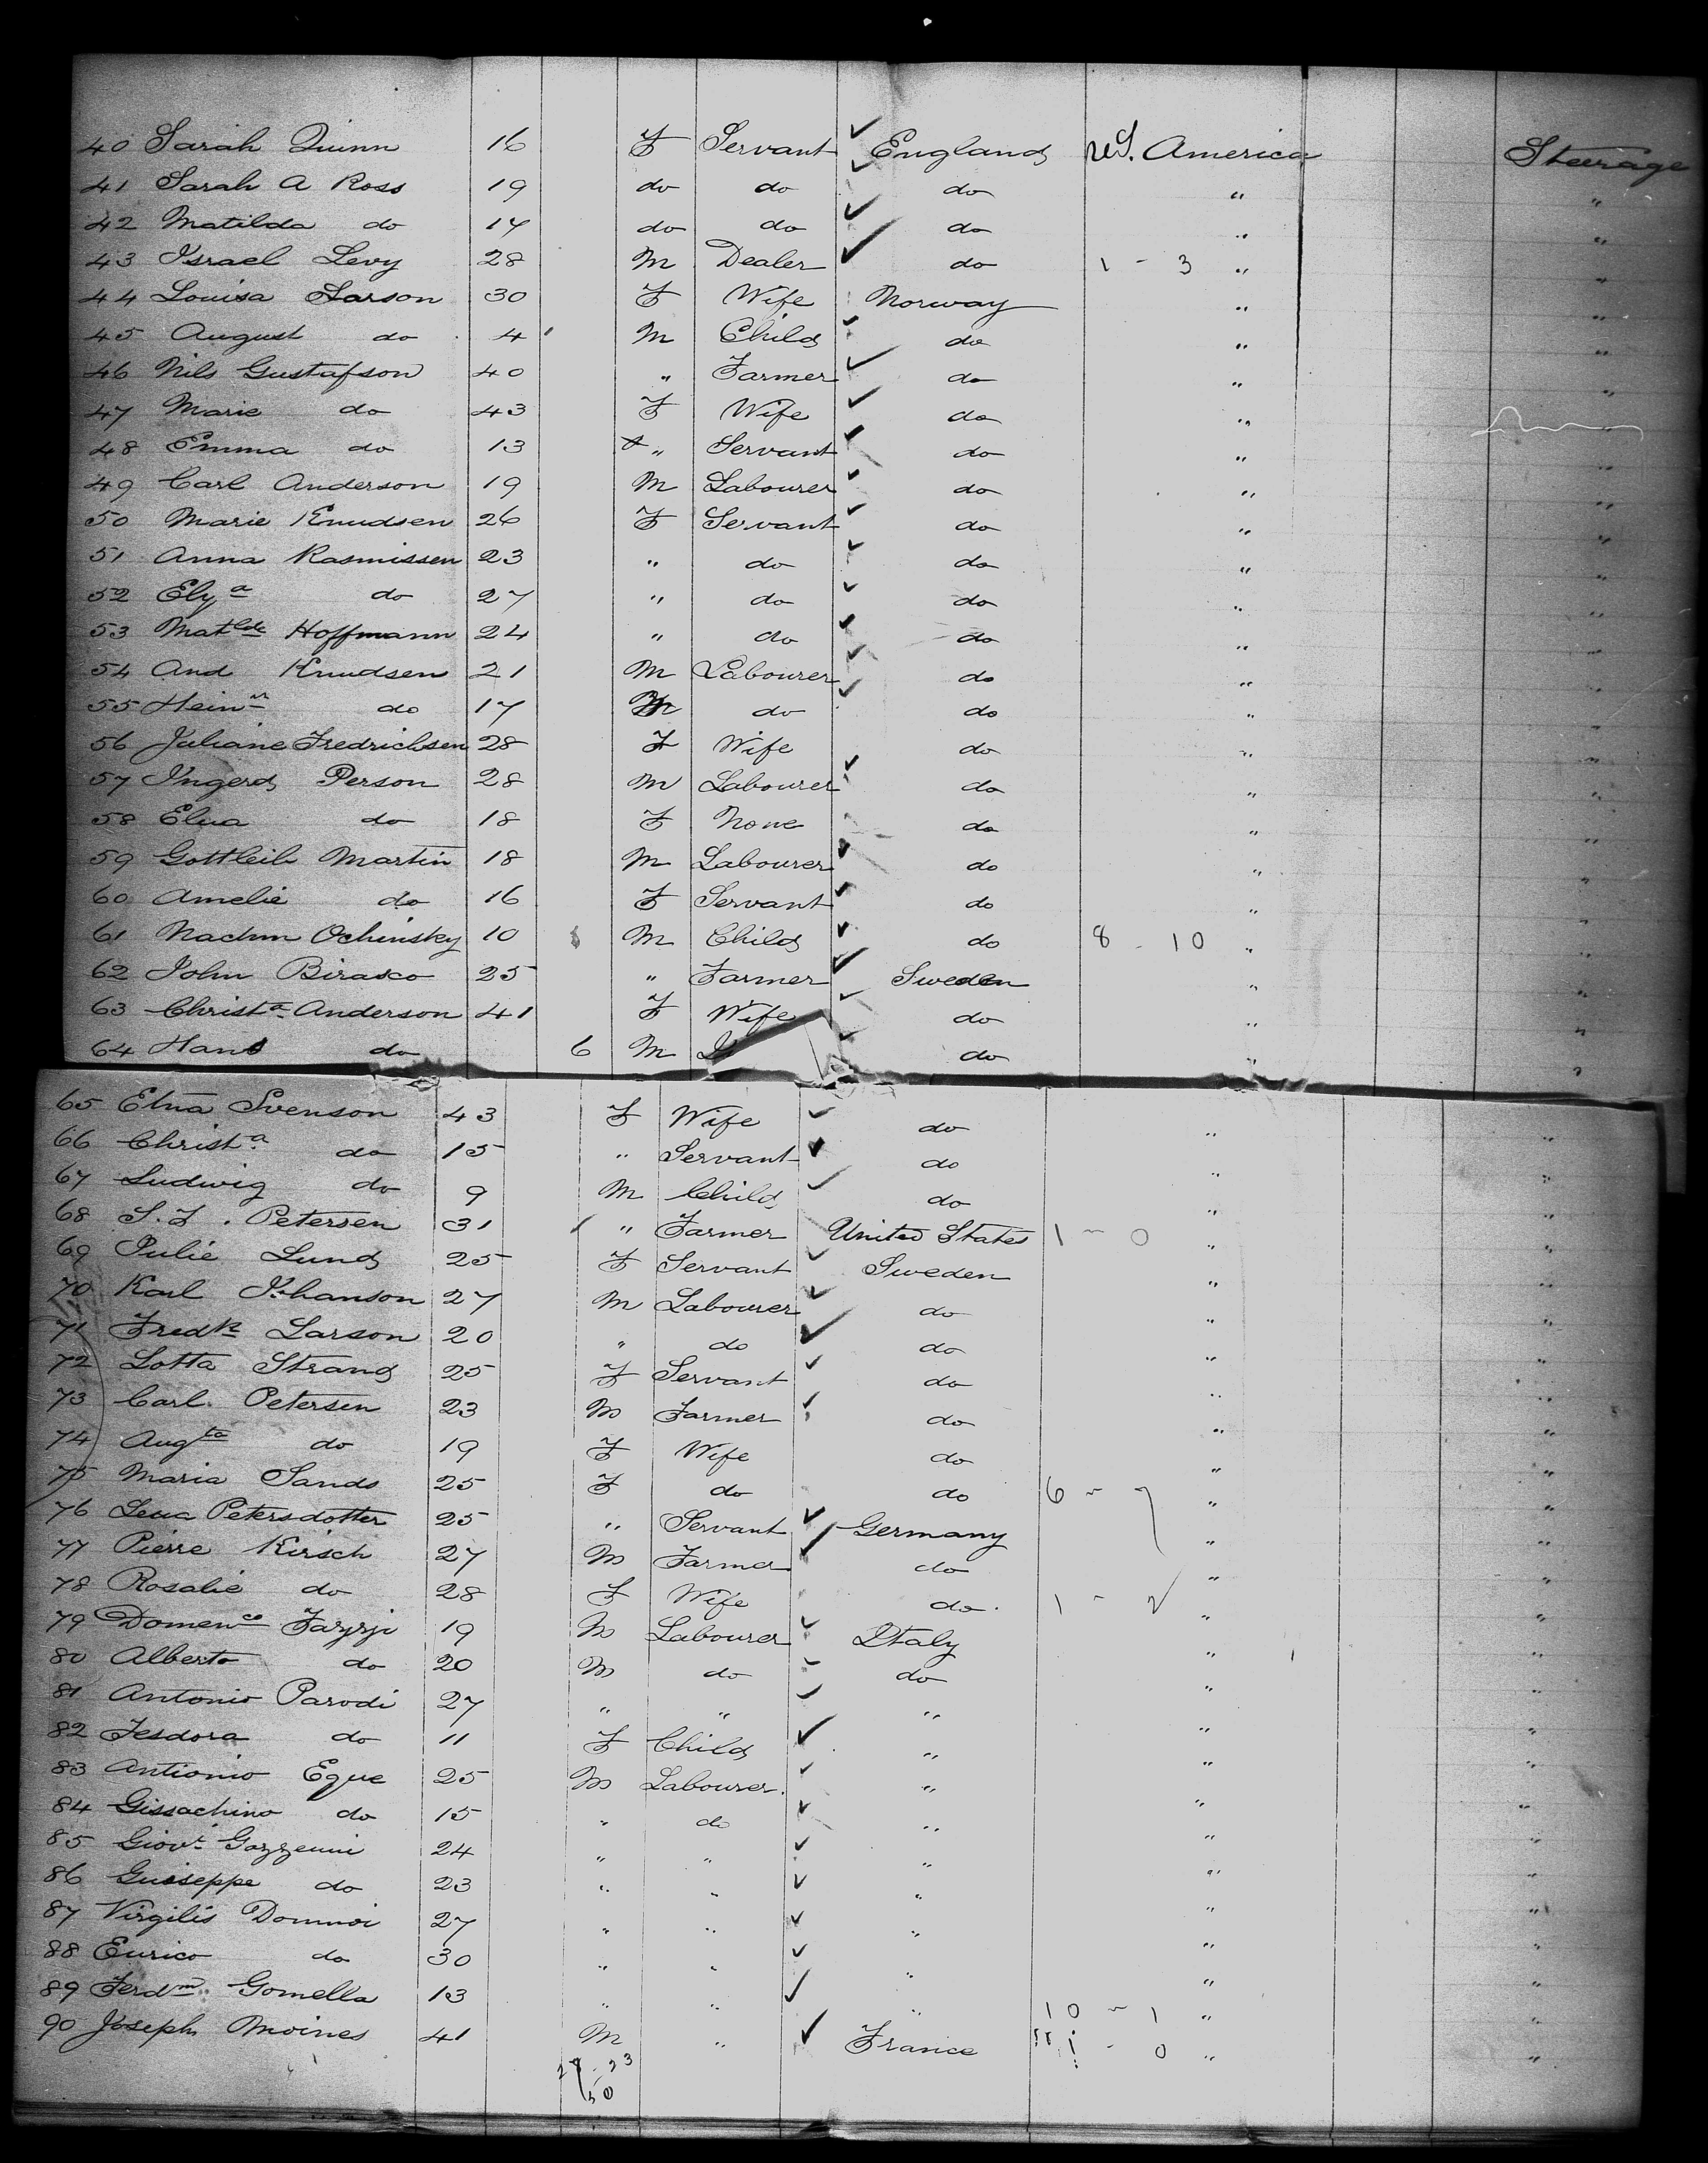 40 Sarah Quinn 16 F Servant England US. America Steerage
41 Sarah A Ross 19 do do do " "
42 Matilda do 17 do do do " "
43 Israel Levy 28 M Dealer do 1 - 3 " "
44 Louisa Larson 30 F Wife Norway " "
45 August do 4 M Child do " "
46 Nils Gustafson 40 " Farmer do " "
47 Marie do 43 F Wife do " "
48 Emma do 13 " Servant do " "
49 Carl Anderson 19 M Labourer do " "
50 Marie Knudsen 26 F Servant do " "
51 Anna Rasmissen 23 " do do " "
52 Ely a do 27 " do do " "
53 Matlde Hoffmann 24 " do do " "
54 And Knudsen 21 M Labourer do " "
55 Hein do 17 M do do " "
56 Juliane Fredrichsen 28 F Wife do " "
57 Ingerd Person 28 M Labourer do " "
58 Elna do 18 F None do " "
59 Gottleib Martin 18 M Labourer do " "
60 Amelie do 16 F Servant do " "
61 Nachm Ochinsky 10 M Child do 8 - 10 " "
62 John Birasco 25 " Farmer Sweden " "
63 Christa Anderson 41 F Wife do " "
64 Hans do 6 M do " "
65 Elna Svenson 43 F Wife do " "
66 Christa do 15 " Servant do " "
67 Ludwig do 9 M Child do " "
68 S. L. Petersen 31 " Farmer United States 1 - 0 " "
69 Julie Lund 25 F Servant Sweden " "
70 Karl Johanson 27 M Labourer do " "
71 Fredk Larson 20 " do do " "
72 Lotta Strand 25 F Servant do " "
73 Carl Petersen 23 M Farmer do " "
74 Augta do 19 F Wife do " "
75 Maria Sands 25 F do do 6 - 7 " "
76 Lena Petersdotter 25 " Servant Germany " "
77 Pierre Kirsch 27 M Farmer do " "
78 Rosalie do 28 F Wife do 1 - " "
79 Domenco 19 M Labourer Italy " "
80 Alberto do 20 M do do " "
81 Antonio Parodi 27 " " " " "
82 Isedora do 11 F Child " " "
83 Antionio Eque 25 M Labourer " " "
84 Gissachino do 15 " do " " "
85 Giov. Gazzenni 24 " " " " "
86 Guiseppe do 23 " " " " "
87 Virgilis Domnoi 27 " " " " "
88 Eurico do 30 " " " " "
89 Ferdm Gomella 13 " " " 10 - 1 " "
90 Joseph Moines 41 M " France 1 - 0 " "
27 - 23
50